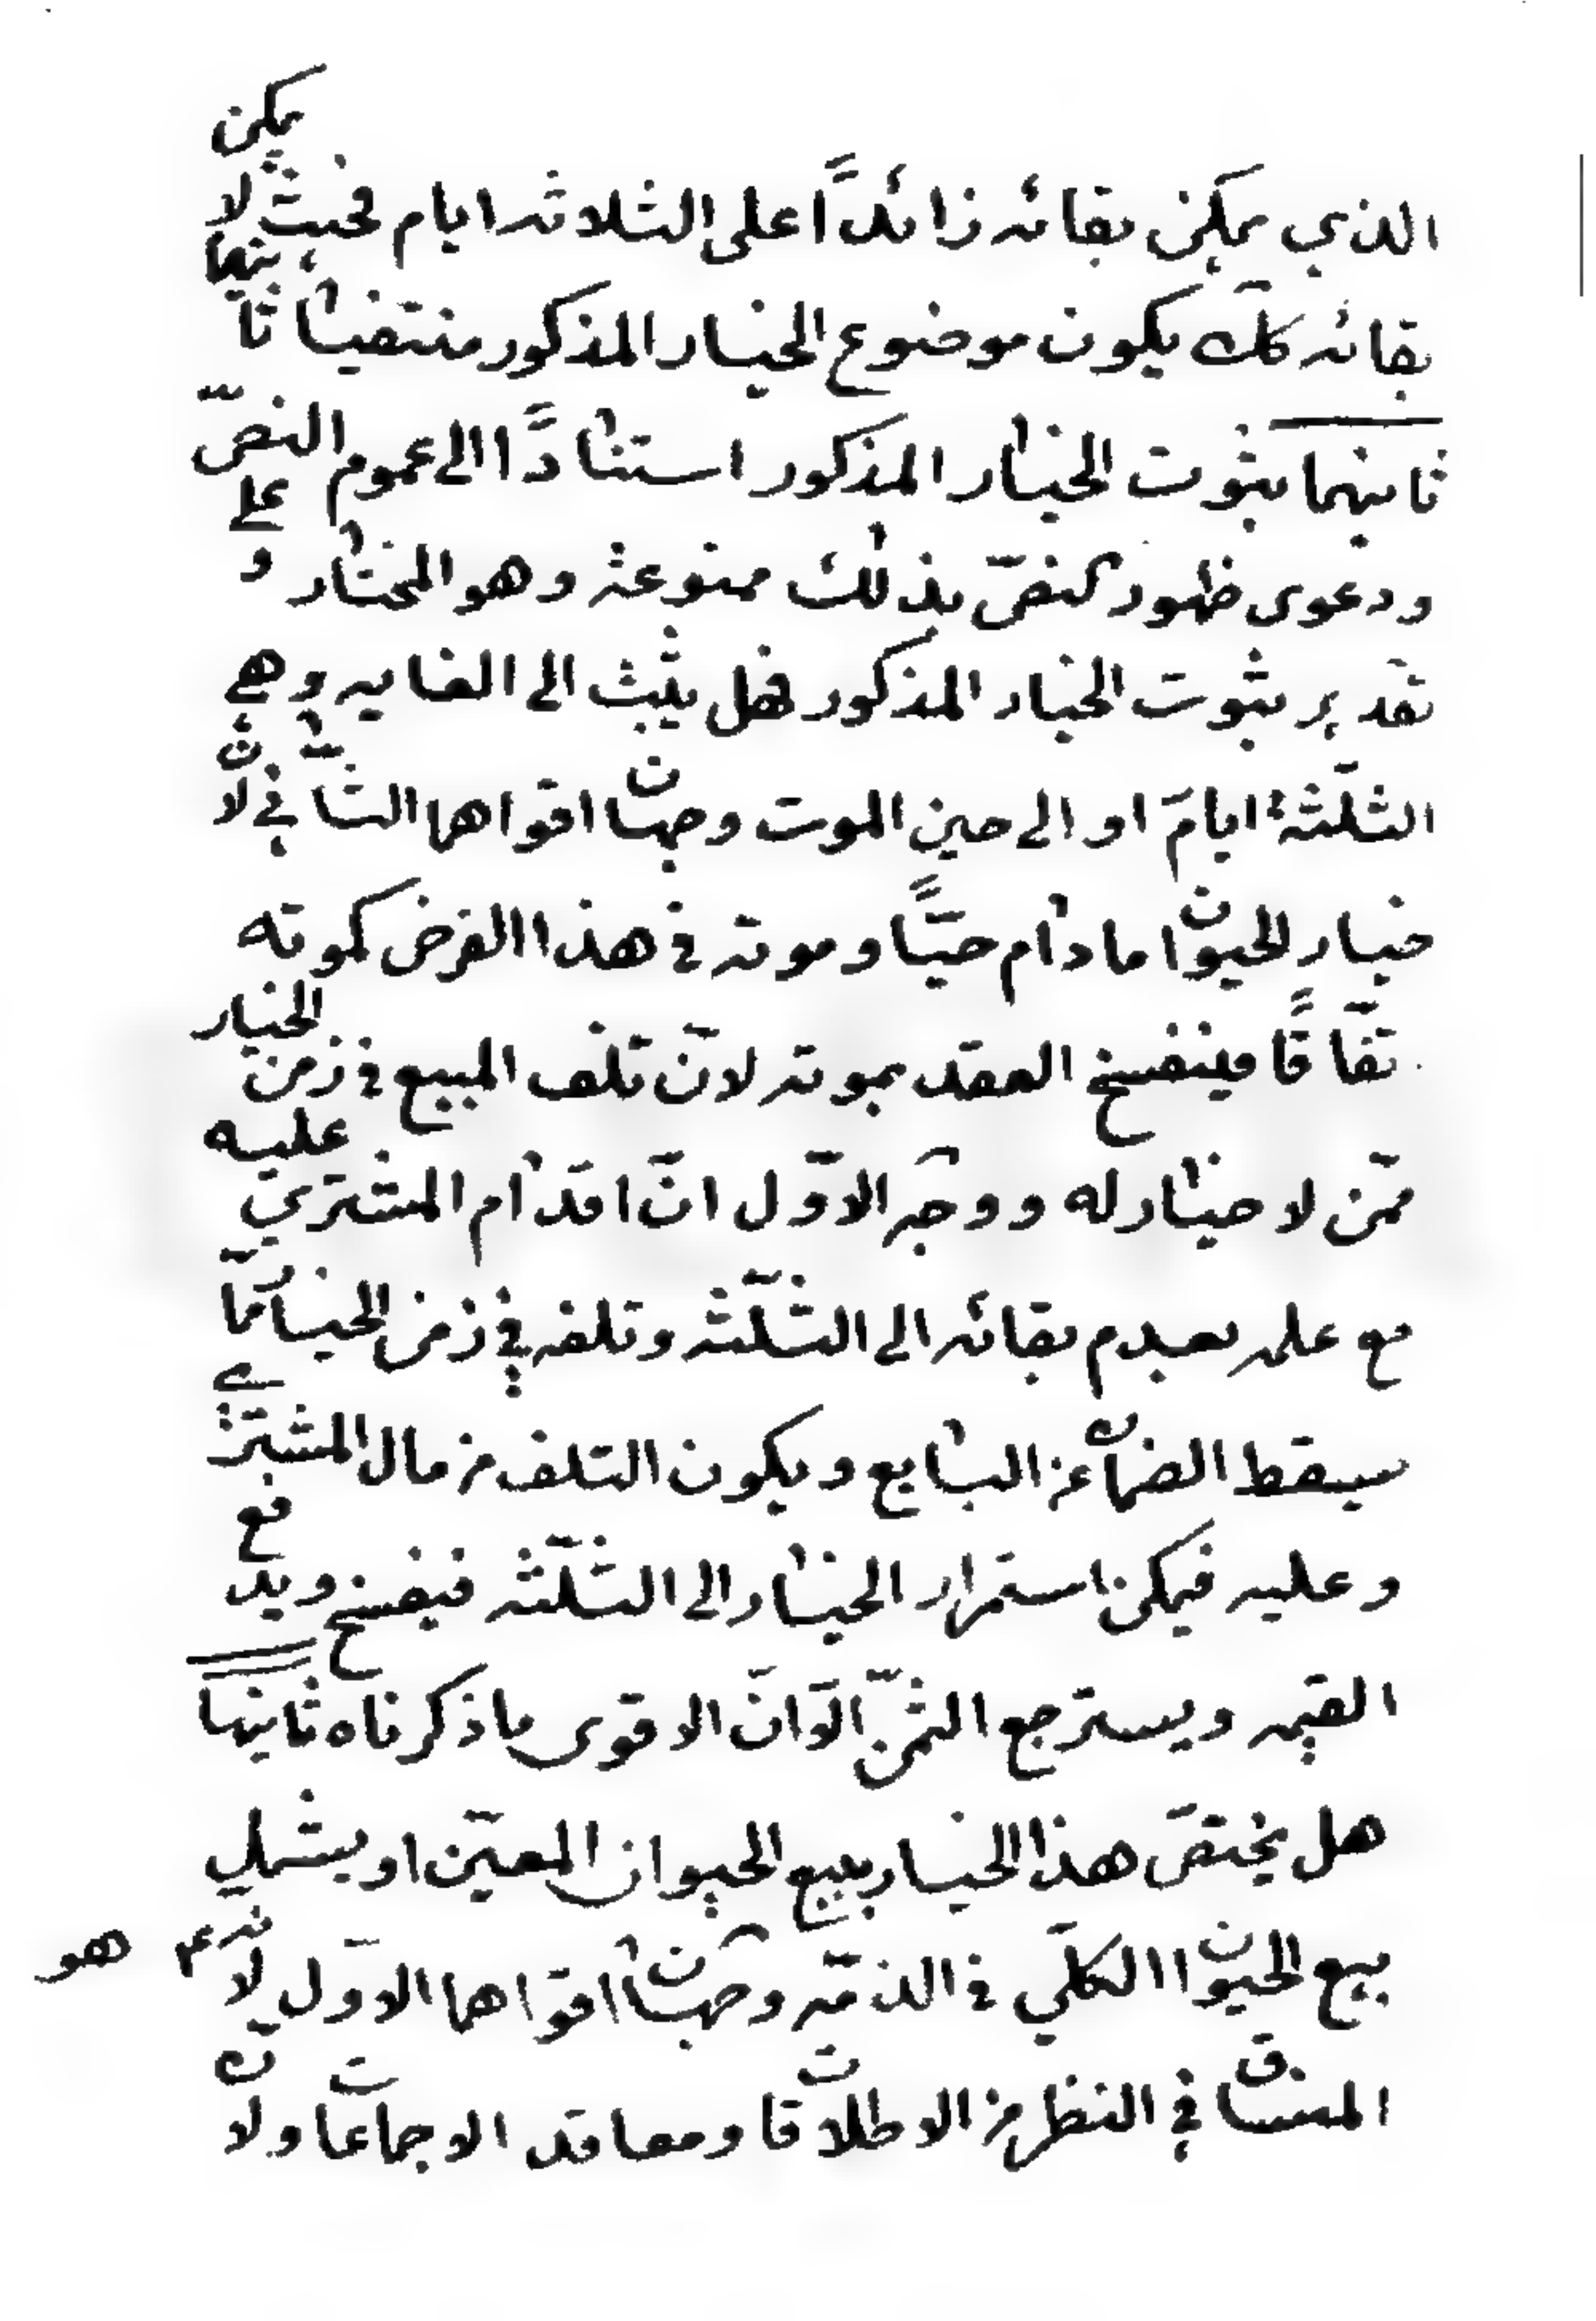 الذي يمكن بقائه زائداً على الثلاثه ايام فحيث لا يمكن
بقائه كك يكون موضوع الخيار المذكور منتفيا ثانيهما
ثانيهما ثبوت الخيار المذكور استناداً الى عموم النصّ
ودعوى ظهور النصّ بذلك ممنوعة وهو المختار و على
تقدير ثبوت الخيار المذكور فهل يثبت الى الغايه وهي
الثلثة ايام او الى حين الموت وجهان اقواها الثاني لانّ
خيار الحيوان ما دام حيّاً وموته في هذا الفرض كموته
تفاقاً فينفسخ العقد بموته لانّ تلف المبيع في زمن الخيار
ممّن لا خيار له ووجه الاوّل انّ اقدام المشتري عليه
مع علمه بعدم بقائه الى الثلثه وتلفه في زمن الخيار ممّا
يسقط الضمان عن البايع ويكون التلف من مال المشتري
وعليه فيمكن استمرار الخيار الى الثلثه فيفسخ ويدفع
القيمه ويسترجع الثمن الّا انّ الاقوى ما ذكرناه ثانيها
هل يختصّ هذا الخيار ببيع الحيوان المعيّن او يشمل
بيع الحيوان الكلّي في الذمّه وجهان اقواها الاوّل لانّه هو
المنساق في النظر من الاطلاقات ومعاقد الاجماعات ولانّ